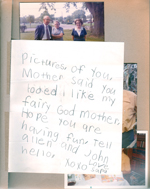 Pictures of You,
Mother said you
looed i like my
fairy God mother.
Hope you are
having fun. Tell
Allen and John
hello. xoxoxo